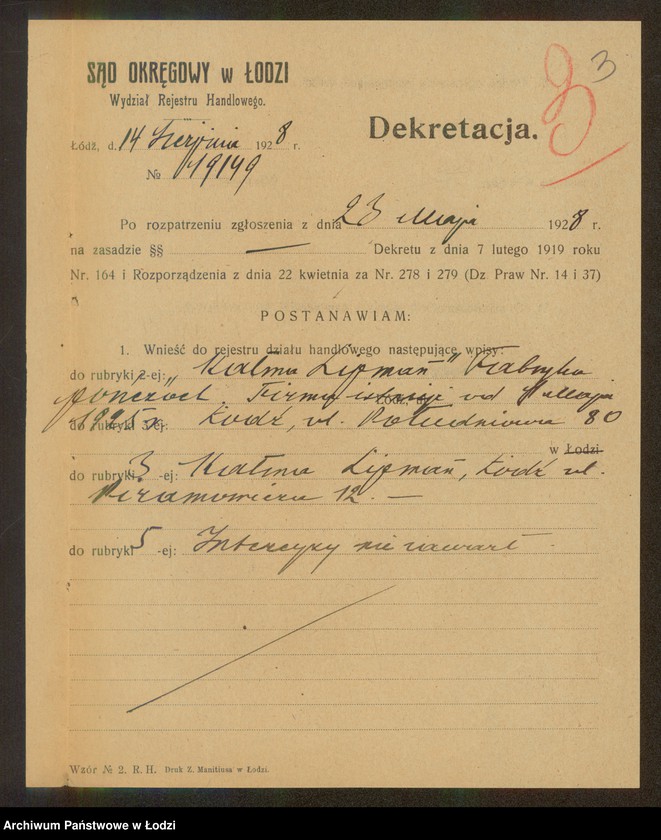 3
SĄD OKRĘGOWY w ŁODZI
Wydział Rejestru Handlowego.
Dekretacja.
Łódź, d. 14 Sierpnia 1928 r.
№ 19149
Po rozpatrzeniu zgłoszenia z dnia 23 Maja 1928 r.
na zasadzie §§ — Dekretu z dnia 7 lutego 1919 roku
Nr. 164 i Rozporządzenia z dnia 22 kwietnia za Nr. 278 i 279 (Dz. Praw Nr. 14 i 37)
POSTANAWIAM:
1. Wnieść do rejestru działu handlowego następujące wpisy:
do rubryki 2-ej: „Kalma Lipman" Fabryka
pończoch. Firma istnieje od Maja
1925 r. Łódź, ul. Południowa 80
do rubryki 3-ej:
w Łodzi
do rubryki 3 -ej: Kalma Lipman, Łódź ul.
Piramowicza 12. —
do rubryki 5 -ej: Intercyzy nie zawarł.
Wzór № 2. R. H. Druk Z. Manitiusa w Łodzi.
Archiwum Państwowe w Łodzi